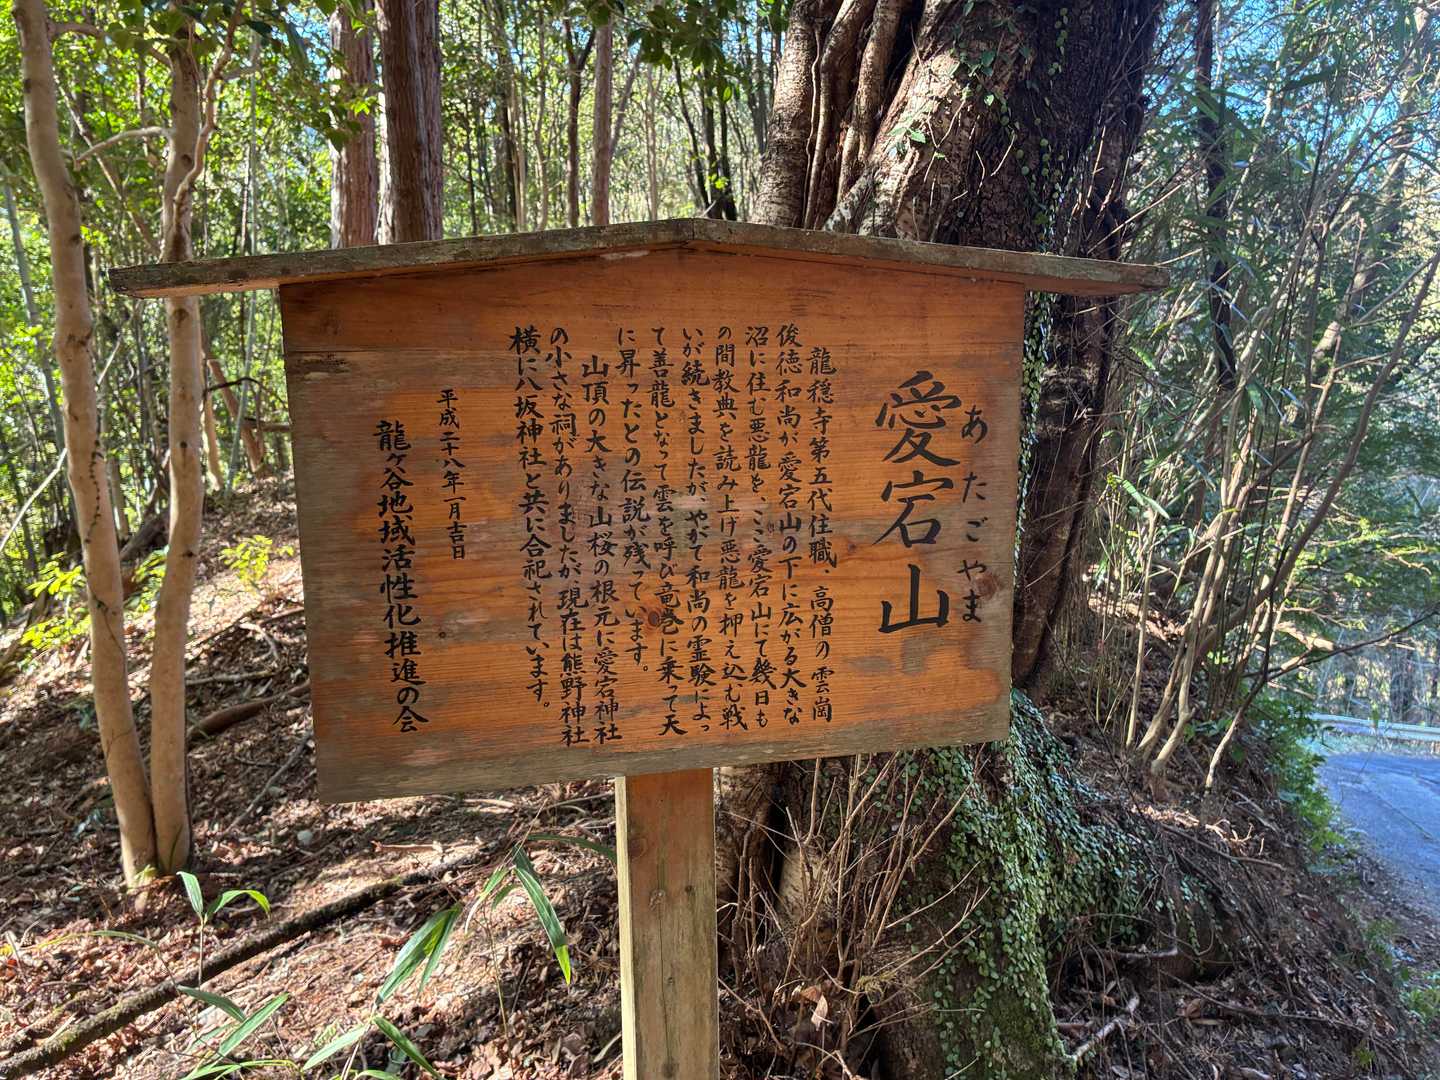 愛宕山
あたごやま
龍穏寺第五代住職、高僧の雲崗
俊徳和尚が愛宕山の下に広がる大きな
沼に住む悪龍を、ここ愛宕山にて幾日も
の間教典を読み上げ悪龍を押え込む戦
いが続きましたが、やがて和尚の霊験によっ
て善龍となって雲を呼び竜巻に乗って天
に昇ったとの伝説が残っています。
山頂の大きな山桜の根元に愛宕神社
の小さな祠がありましたが、現在は熊野神社
横に八坂神社と共に合祀されています。
平成二十八年一月吉日
龍ヶ谷地域活性化推進の会